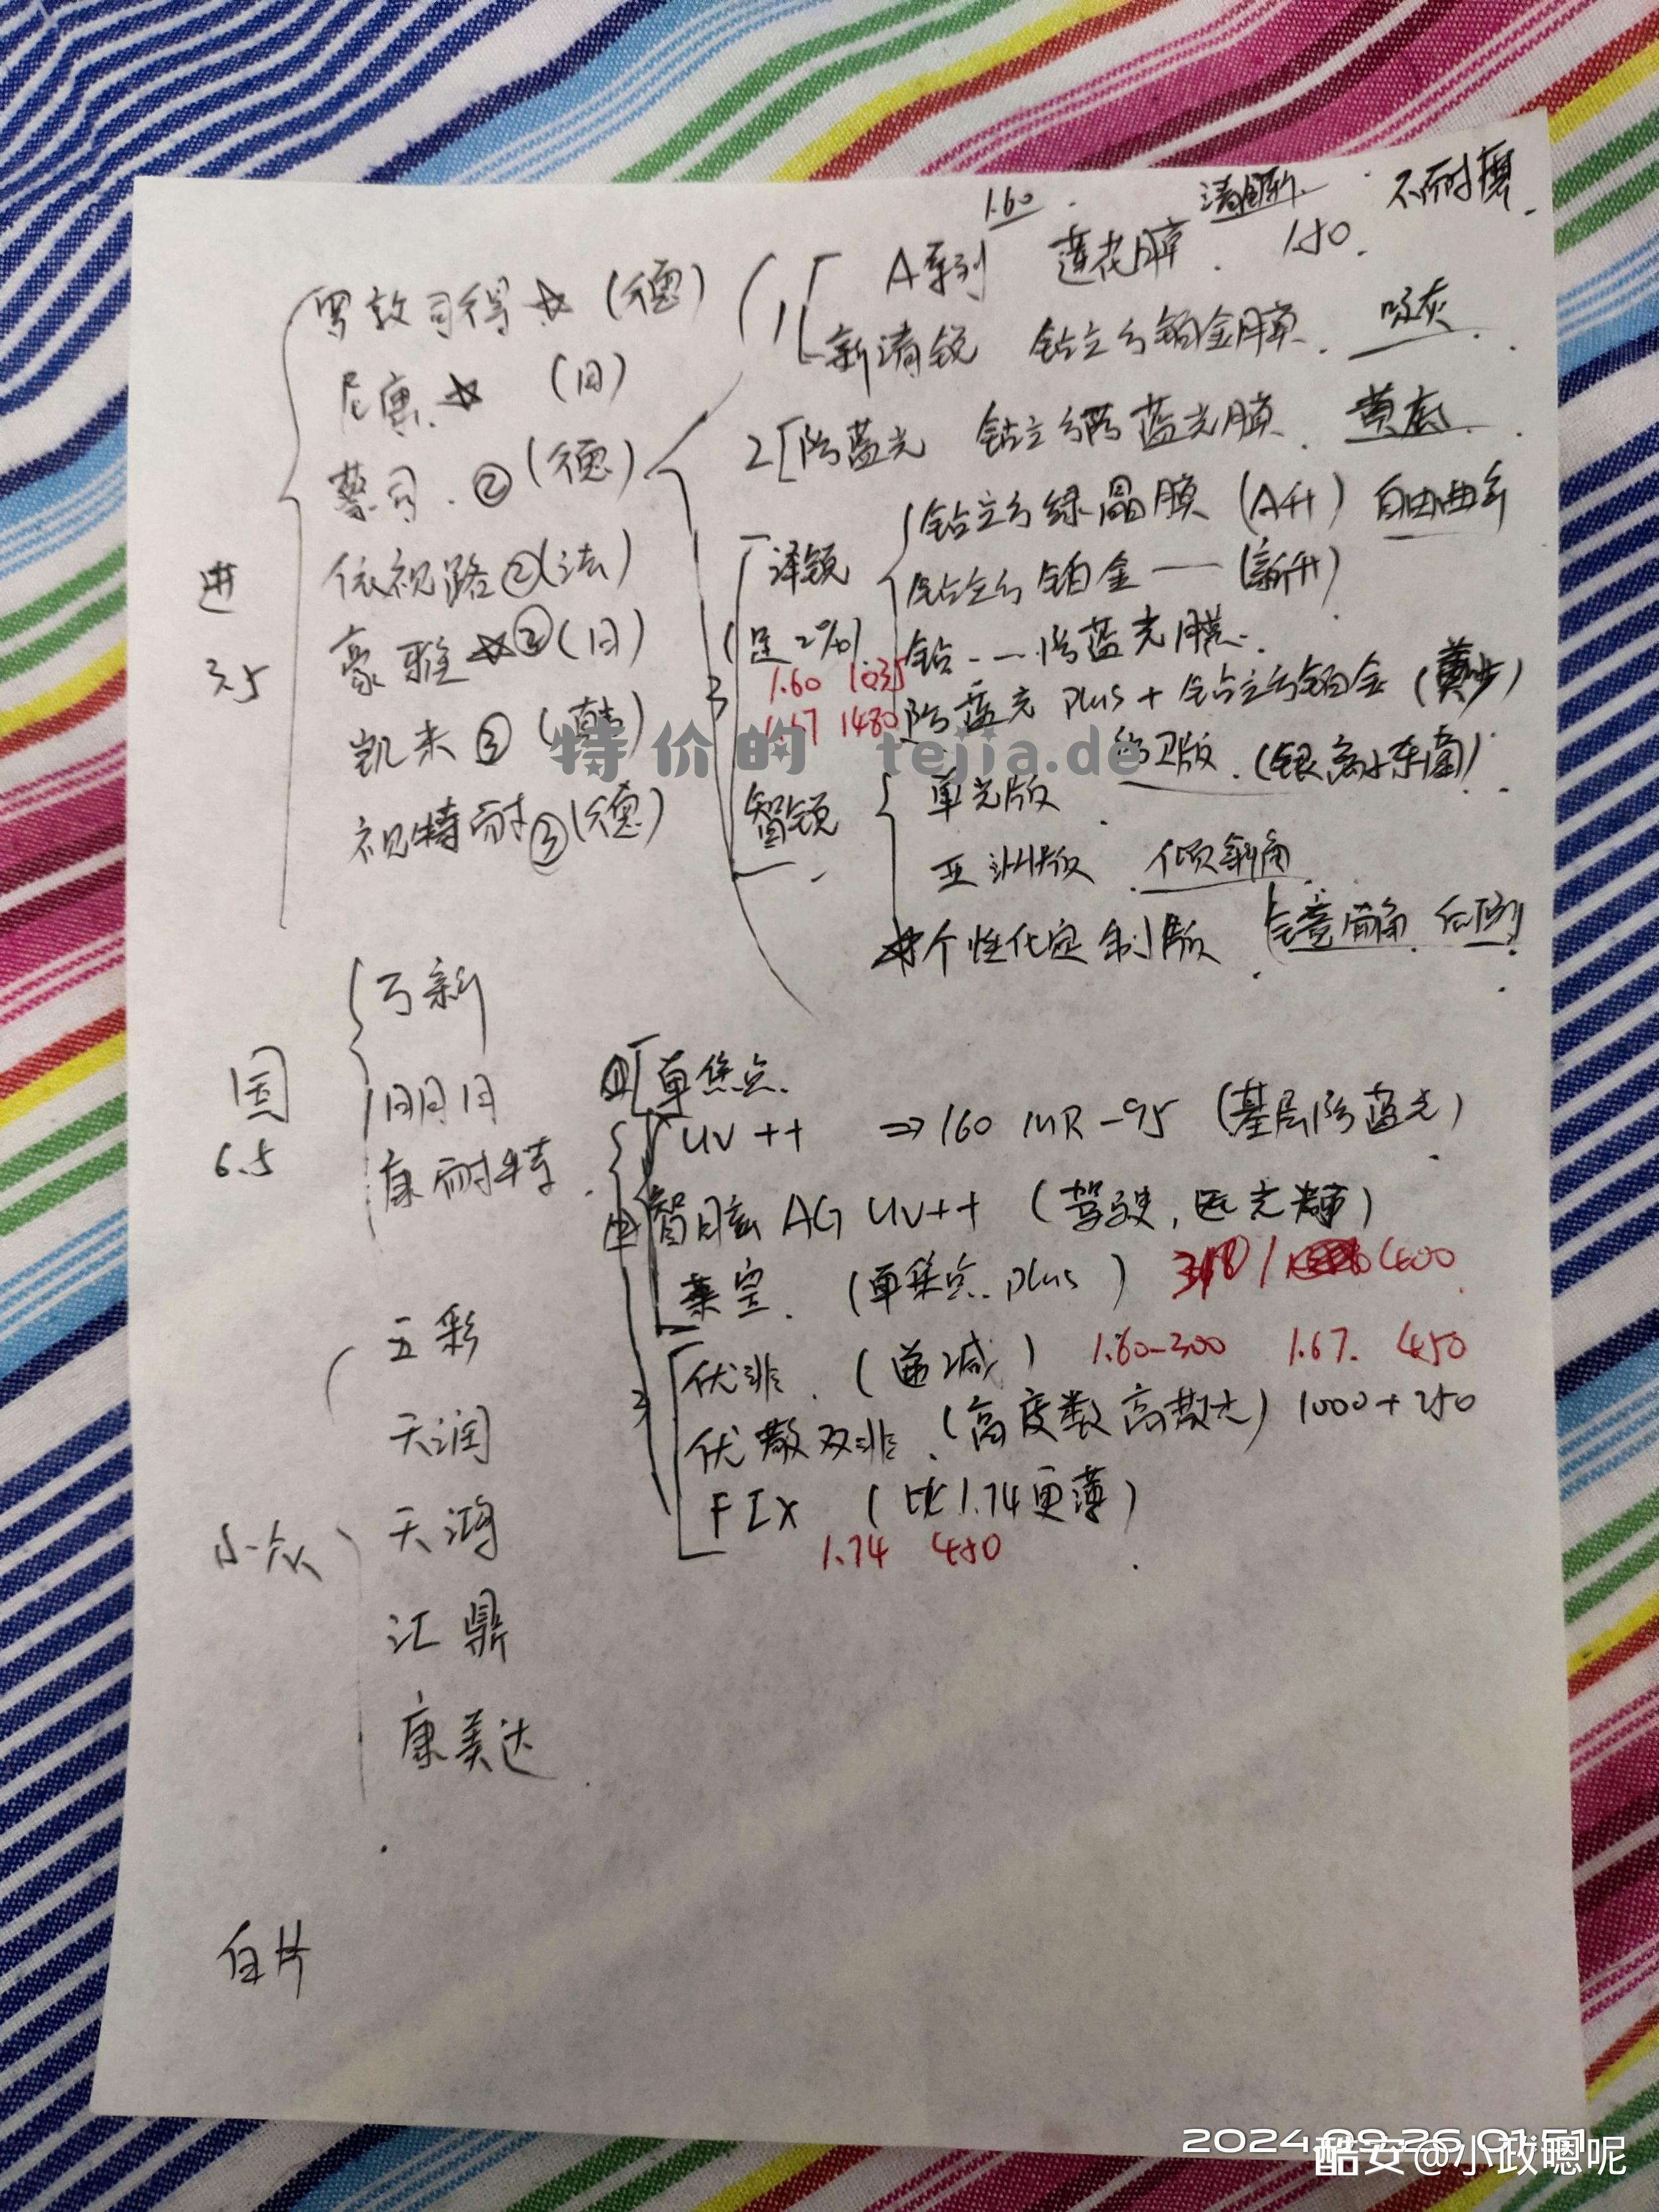 1.60 清晰 不耐磨
A系列 莲花膜 150
罗敦司得 (德)
新清锐 钻立方铂金膜
尼康 (日)
2 防蓝光 钻立方防蓝光膜 黄底
蔡司 ② (德)
钻立方绿晶膜 (A升) 自由曲
依视路 ② (法)
泽锐
钻立方铂金 — (新升)
进
豪雅 ② (日)
(足2%)
钻 - — 防蓝光膜
3.5
3
1.60 1035
防蓝光 plus + 钻立方铂金
凯米 ③ (韩)
1.67 1480
版 (银离子)
视特耐 ③ (德)
智锐
单光版
亚洲版 倾斜角
个性化定制版
国
6.5
万新
明月
康耐特
① 单焦点
UV ++ ⇒ 160 MR-95 (基层防蓝光)
② 智眩 AG UV++ (驾驶,匹光)
莱宝 (单焦点 plus) 400
3
优非 (递减) 1.60-300 1.67 450
优散双非 (高度数高散光) 1000+250
FIX (比1.74更薄)
1.74 450
小众
五彩
天润
天鸿
汇鼎
康美达
白片
特价的 tejia.de
2024.09.26 01:51
酷安@小政嗯呢